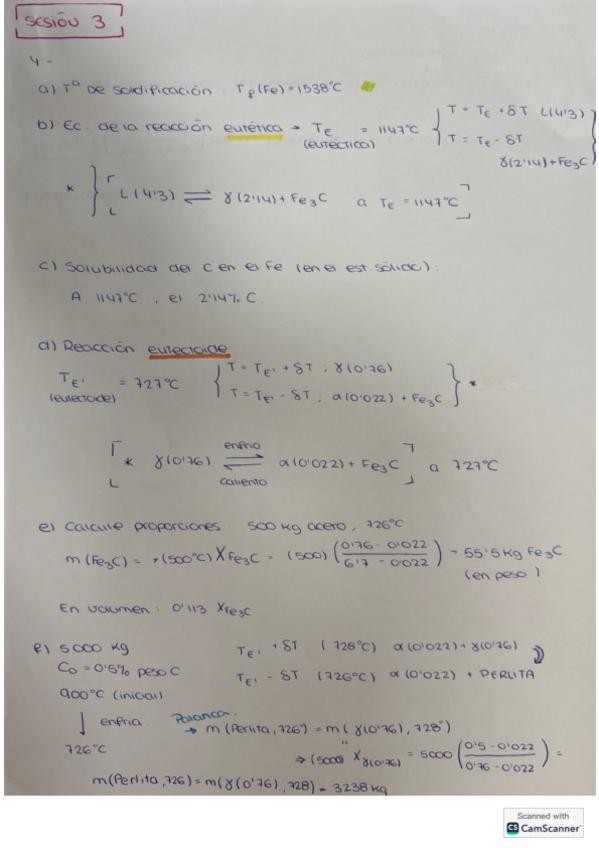 SESIÓN 3
4-
a) Tª DE SOLIDIFICACIÓN: Tf(Fe)=1538ºC
b) Ec. de la reacción eutética → TE (EUTÉCTICA) = 1147ºC { T = TE + δT L(4'3)
T = TE - δT γ(2'14)+Fe3C }
* } [ L(4'3) ⇌ γ(2'14) + Fe3C a TE = 1147ºC ]
c) Solubilidad del C en el Fe (en el est. sólido):
A 1147ºC, el 2'14% C.
d) Reacción eutectoide
TE' (eutectoide) = 727ºC { T = TE' + δT; γ(0'76)
T = TE' - δT; α(0'022) + Fe3C } *
[ * γ(0'76) enfrío ⇌ caliento α(0'022) + Fe3C ] a 727ºC
e) Calcule proporciones: 500 kg acero, 726ºC
m(Fe3C) = (500ºC) XFe3C = (500) (0'76 - 0'022 / 6'7 - 0'022) = 55'5 kg Fe3C
(en peso)
En volumen: 0'113 XFe3C
f) 5000 kg TE' + δT (728ºC) α(0'022) + γ(0'76)
C0 = 0'5% peso C TE' - δT (726ºC) α(0'022) + PERLITA
900ºC (inicial)
↓ enfria. Palanca.
→ m(Perlita, 726º) = m(γ(0'76), 728º)
726ºC
⇒ (5000) Xγ(0'76) = 5000 (0'5 - 0'022 / 0'76 - 0'022) =
m(Perlita, 726) = m(γ(0'76), 728) = 3238 kg
Scanned with
CS CamScanner